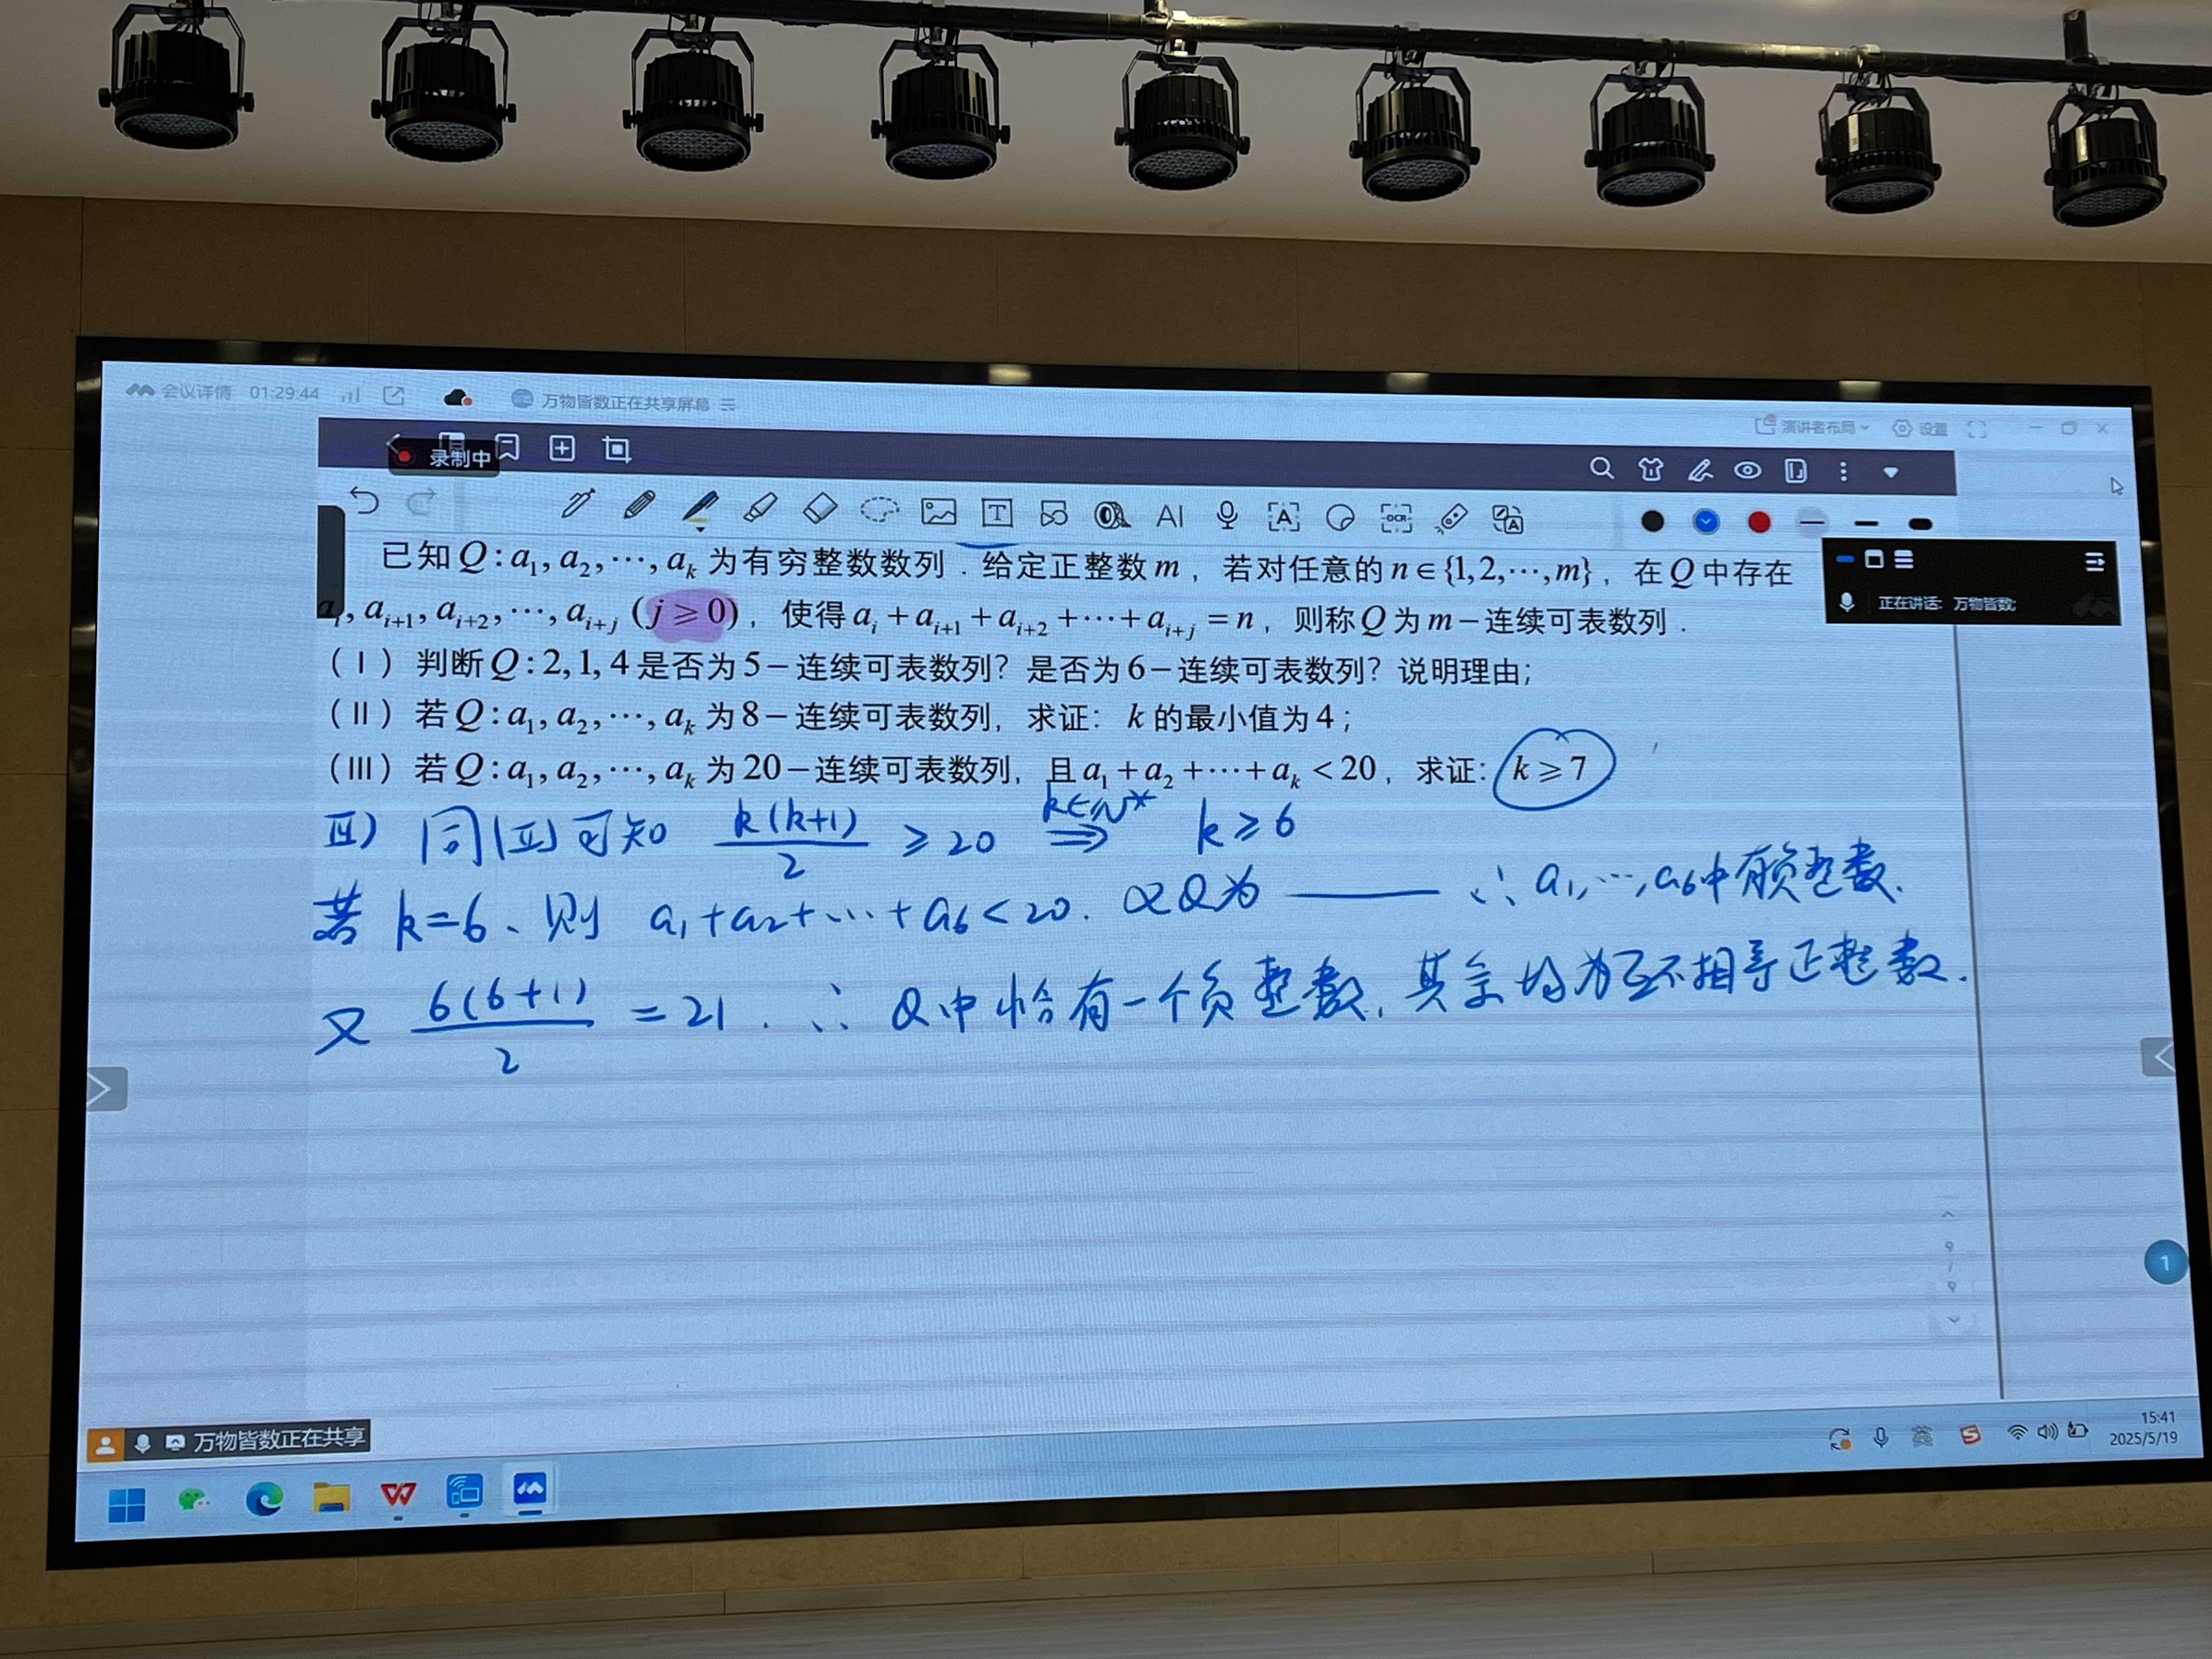 会议详情 01:29:44 万物皆数正在共享屏幕
演讲者布局 设置
录制中
T AI A OCR A
已知Q:a₁,a₂,⋯,aₖ为有穷整数数列.给定正整数m,若对任意的n∈{1,2,⋯,m},在Q中存在
aᵢ,aᵢ₊₁,aᵢ₊₂,⋯,aᵢ₊ⱼ(j≥0),使得aᵢ+aᵢ₊₁+aᵢ₊₂+⋯+aᵢ₊ⱼ=n,则称Q为m-连续可表数列.
正在讲话: 万物皆数;
(Ⅰ)判断Q:2,1,4是否为5-连续可表数列?是否为6-连续可表数列?说明理由;
(Ⅱ)若Q:a₁,a₂,⋯,aₖ为8-连续可表数列,求证:k的最小值为4;
(Ⅲ)若Q:a₁,a₂,⋯,aₖ为20-连续可表数列,且a₁+a₂+⋯+aₖ<20,求证:k≥7
Ⅲ) 同(Ⅱ)可知 k(k+1)/2 ≥20 k∈N* ⇒ k≥6
若k=6、则 a₁+a₂+⋯+a₆<20. 又Q为 —— ∴a₁,⋯,a₆中有负整数.
又 6(6+1)/2 =21. ∴Q中恰有一个负整数,其余均为互不相等正整数.
1
万物皆数正在共享
英
15:41
2025/5/19